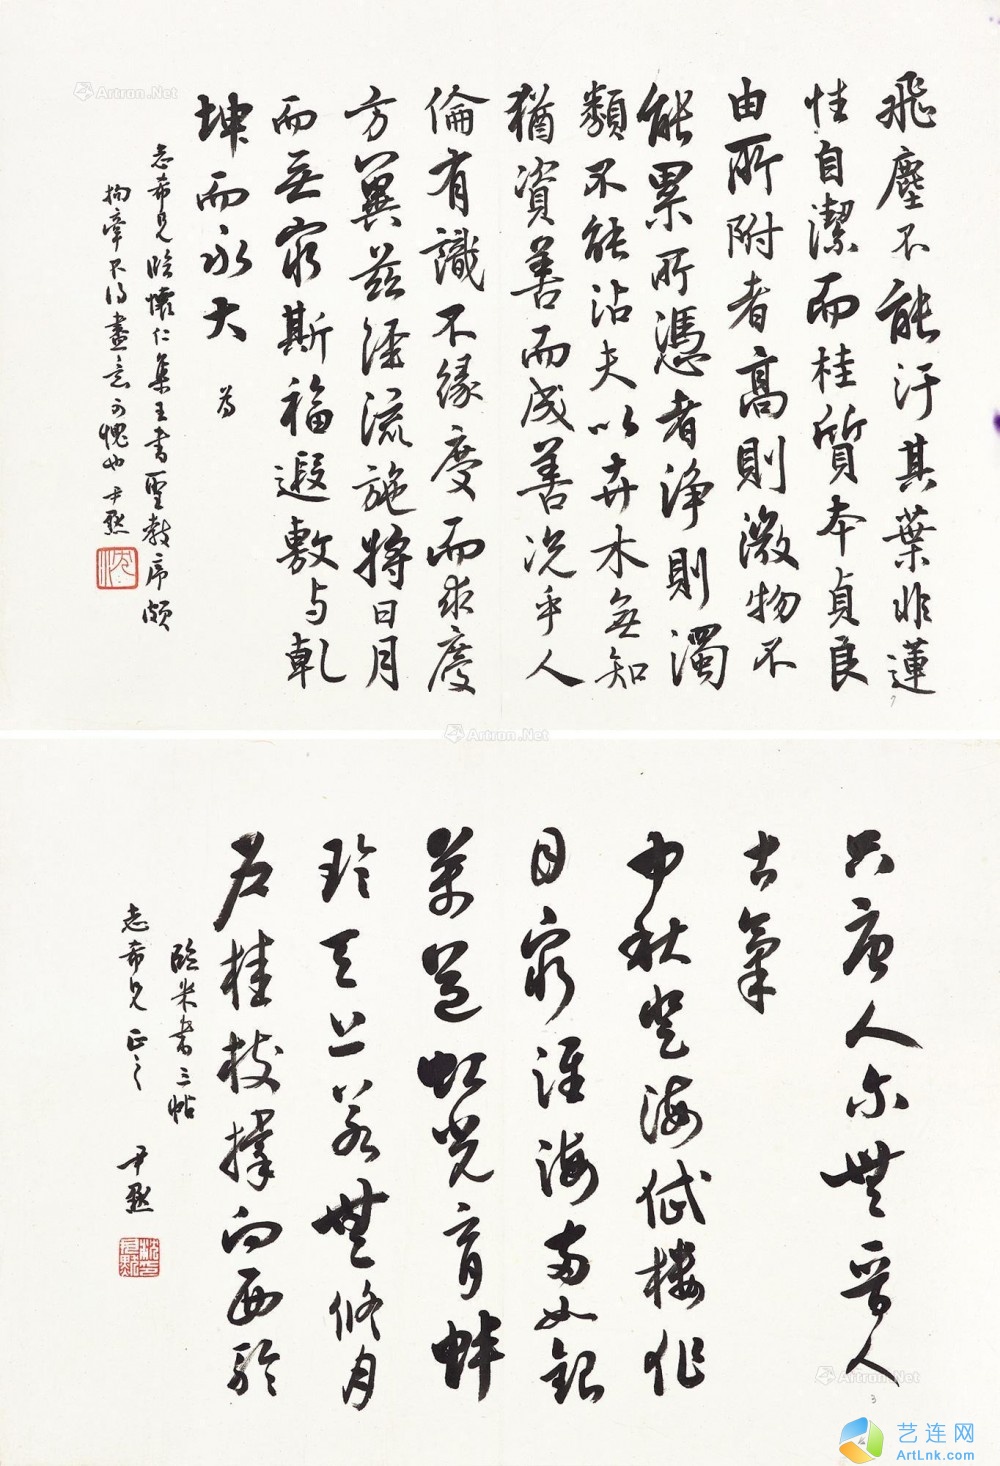 飛塵不能汙其葉非蓮
性自潔而桂質本貞良
由所附者高則微物不
能累所憑者淨則濁
類不能沾夫以卉木無知
猶資善而成善況乎人
倫有識不緣慶而求慶
方冀茲經流施將日月
而無窮斯福遐敷与乾
坤而永大 為
志希兄臨懷仁集王書聖教序頗
拘牽不得盡意可愧也 尹默
只唐人亦無晉人
古氣
中秋登海岱樓作
目窮淮海兩如銀
萬道虹光育蚌
珍天上若無修月
戶桂枝撐向西輪
臨米書三帖
志希兄正之 尹默
Artron.Net
Artron.Net
Artron.Net
3
艺连网
ArtLnk.com